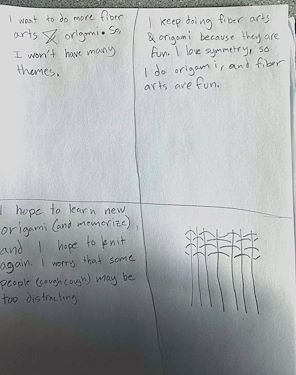 I want to do more fiber
arts origami. So,
I won't have many
themes.
I keep doing fiber arts
& origami because they are
fun. I love symmetry, so
I do origami, and fiber
arts are fun.
I hope to learn new
origami (and memorize),
and I hope to knit
again. I worry that some
people (cough cough) may be
too distracting